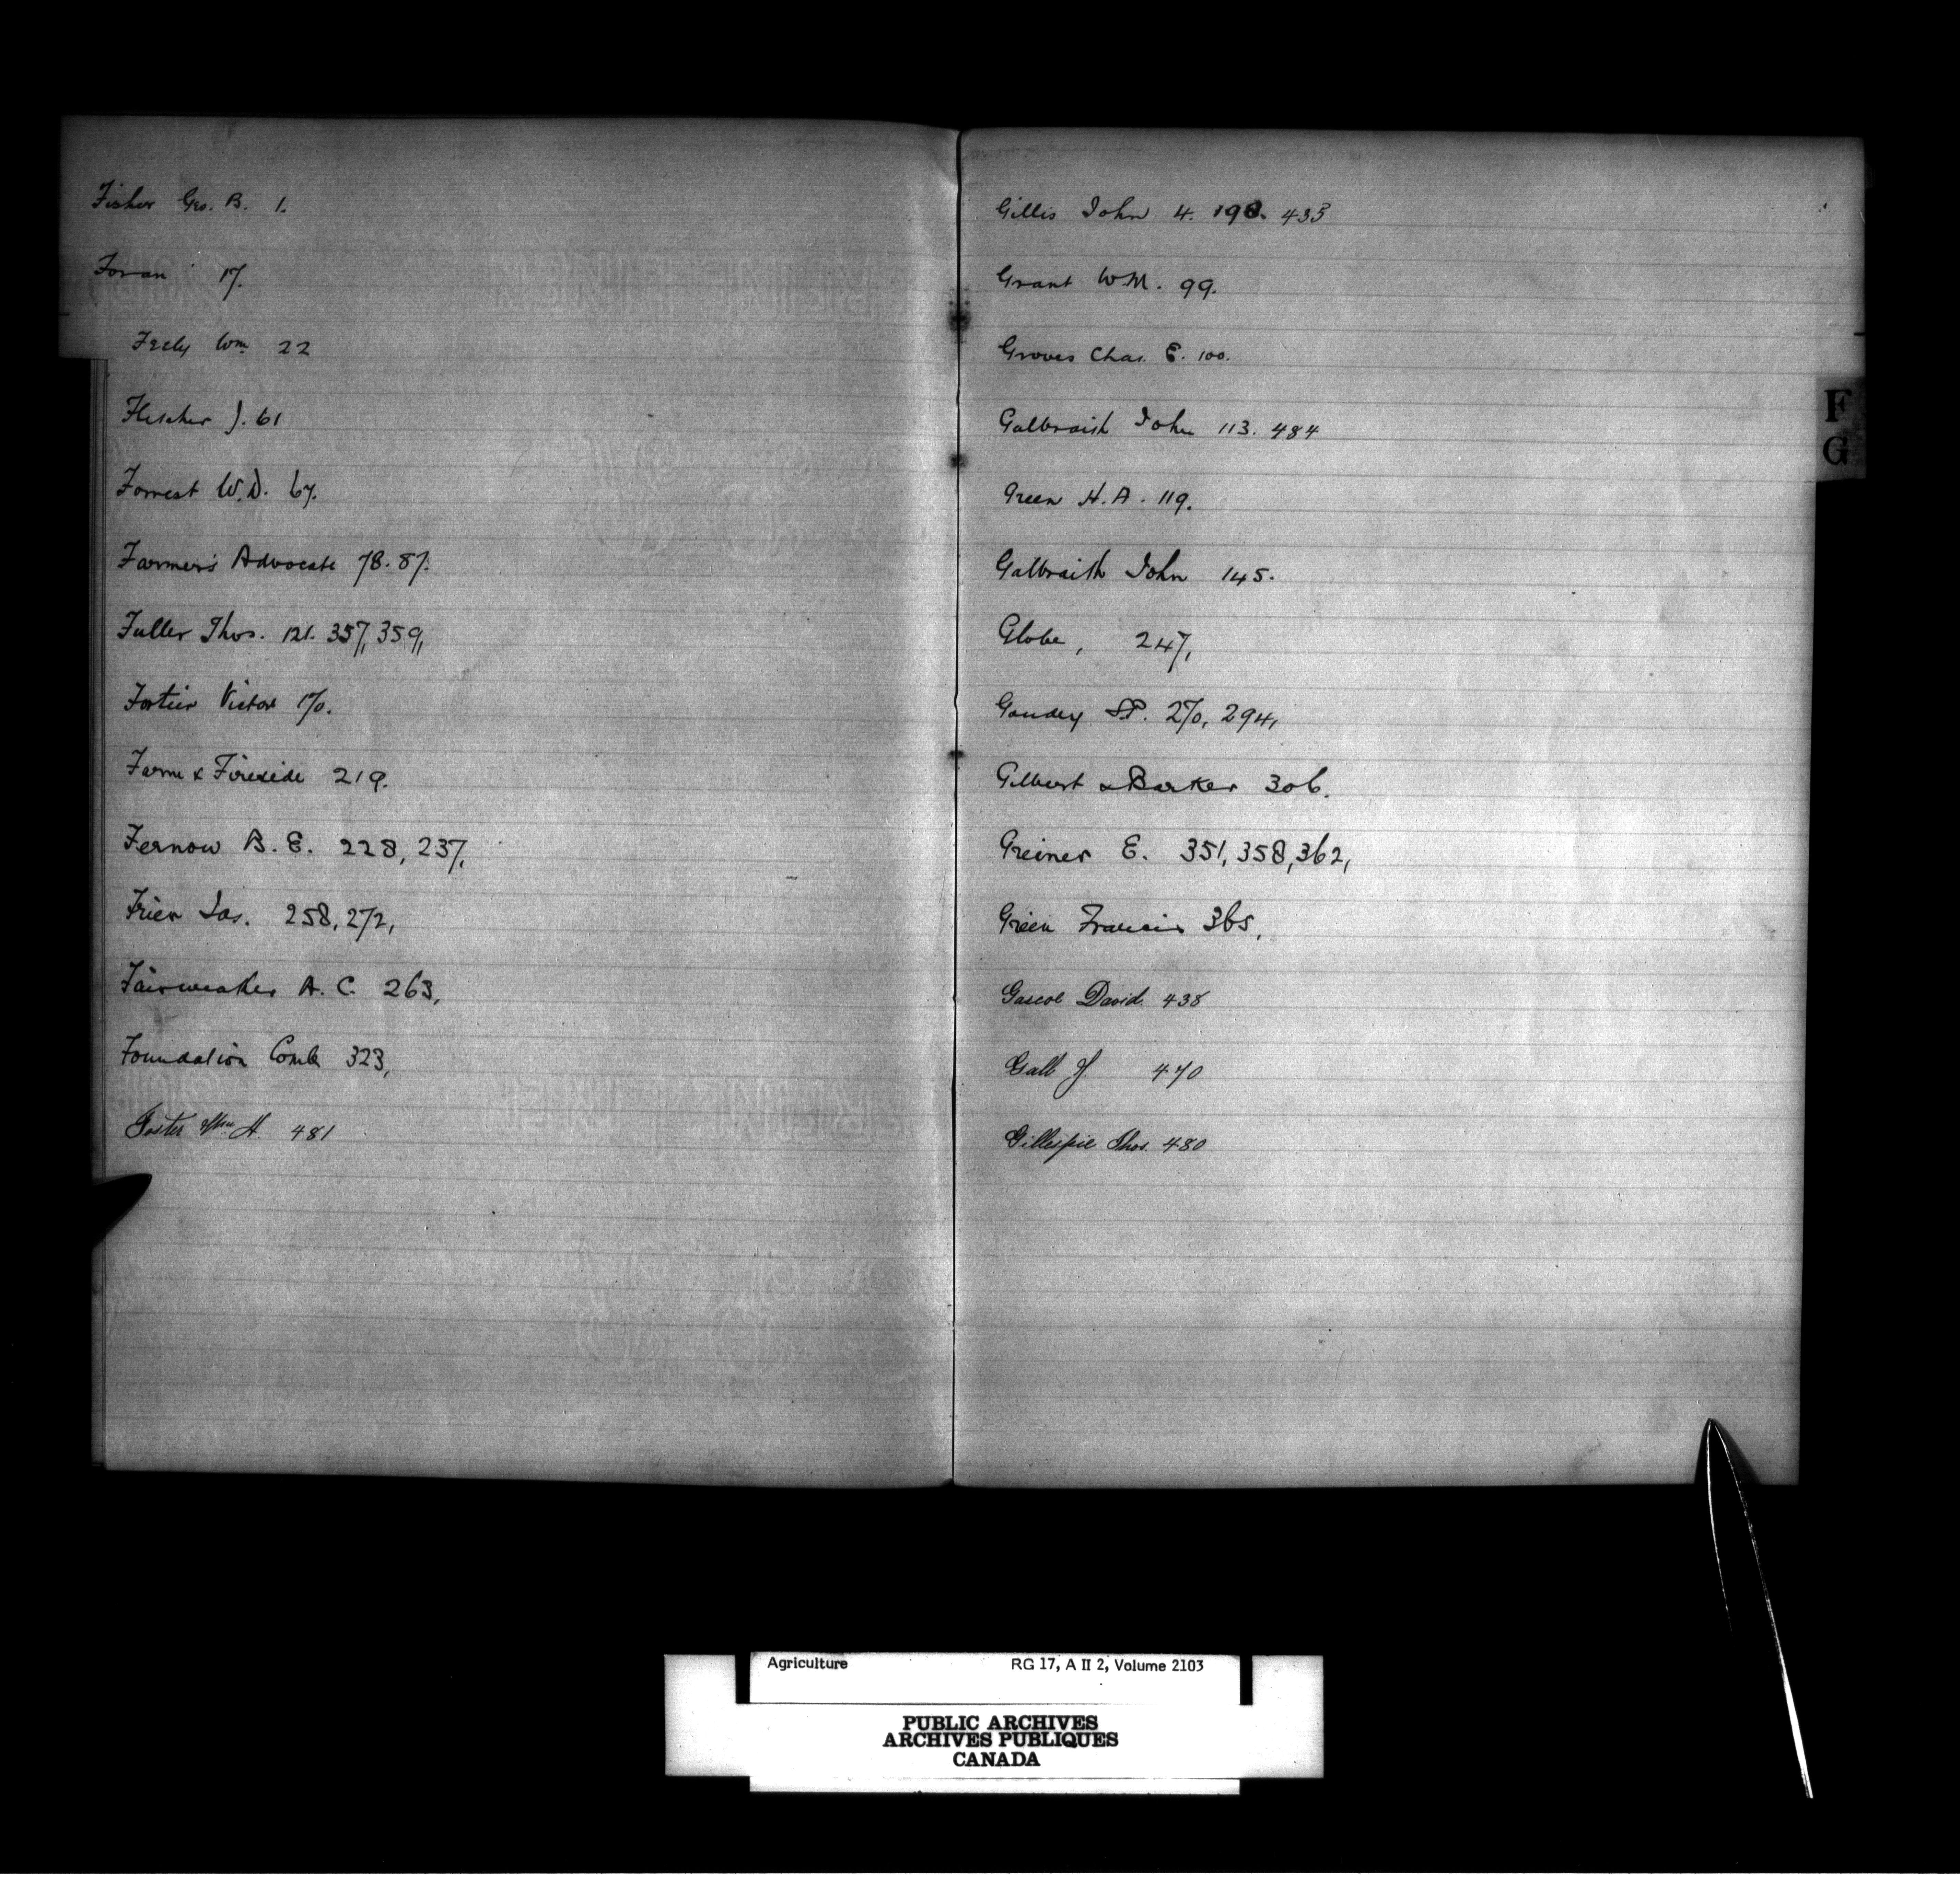 Fisher Geo. B. 1.
Foran 17.
Feely Wm. 22
Fletcher J. 61
Forrest W. D. 67.
Farmer's Advocate 78. 87.
Fuller Thos. 121. 357, 359,
Fortier Victor 170.
Farm & Fireside 219.
Fernow B. E. 228, 237,
Frier Jas. 258, 272,
Fairweather A. C. 263,
Foundation Comb 323,
Foster Wm H. 481
Gillis John 4. 198. 435
Grant W.M. 99.
Groves Chas. E. 100.
Galbraith John 113. 484
Green H. A. 119.
Galbraith John 145.
Globe, 247,
Goudey S.P. 270, 294,
Gilbert & Barker 306.
Greiner E. 351, 358, 362,
Green Francis 365,
David 438
Gall J. 470
Gillespie Thos. 480
F
G
Agriculture RG 17, A II 2, Volume 2103
PUBLIC ARCHIVES
ARCHIVES PUBLIQUES
CANADA